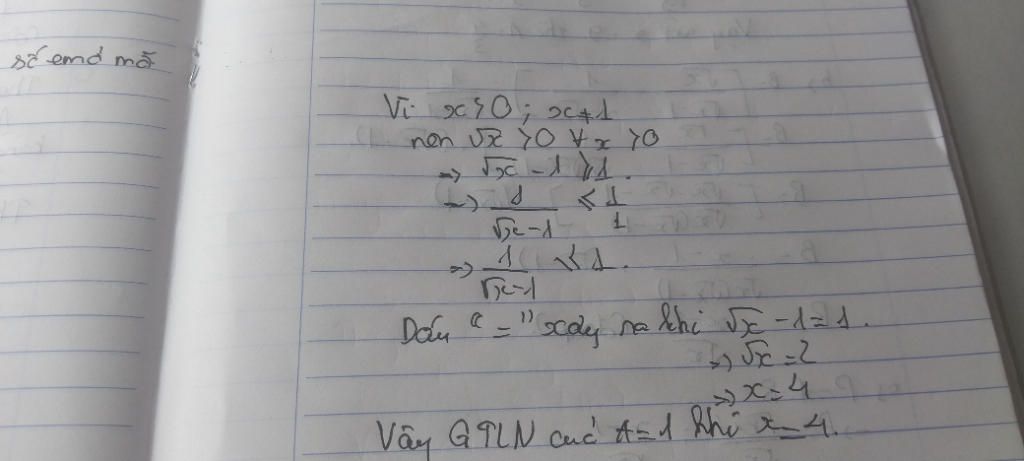 số
Vì x > 0 ; x ≠ 1
nên √x > 0 ∀ x > 0
=> √x - 1 ⩾ 1.
=> 1/(√x-1) ⩽ 1/1
=> 1/(√x-1) ⩽ 1.
Dấu "=" xảy ra khi √x - 1 = 1.
=> √x = 2
=> x = 4
Vậy GTLN của A = 1 khi x = 4.